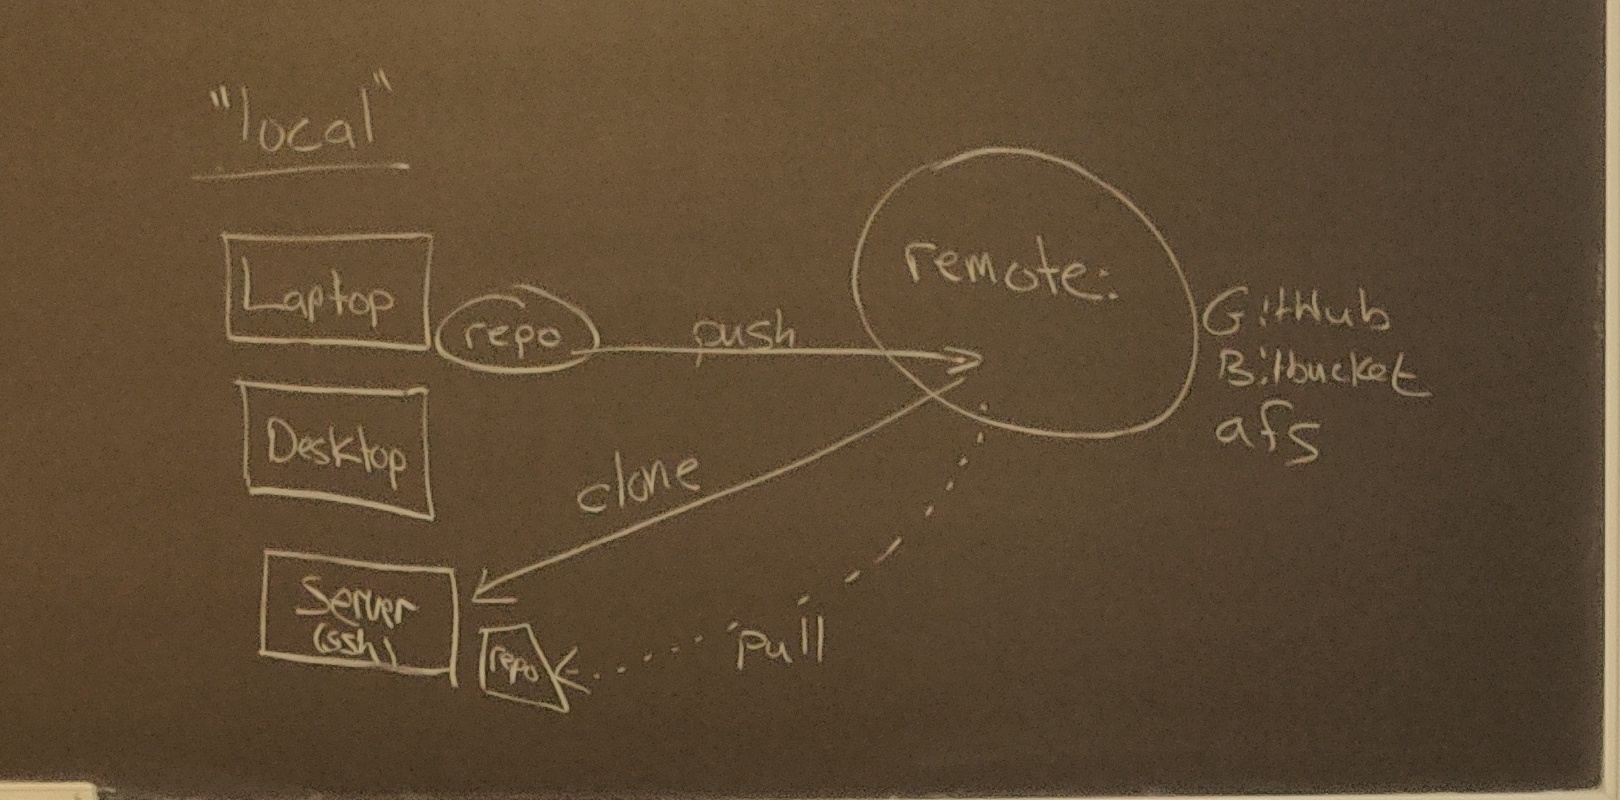 "local"
Laptop
repo
push
remote:
GitHub
Bitbucket
afs
Desktop
clone
Server
(ssh)
repo
pull